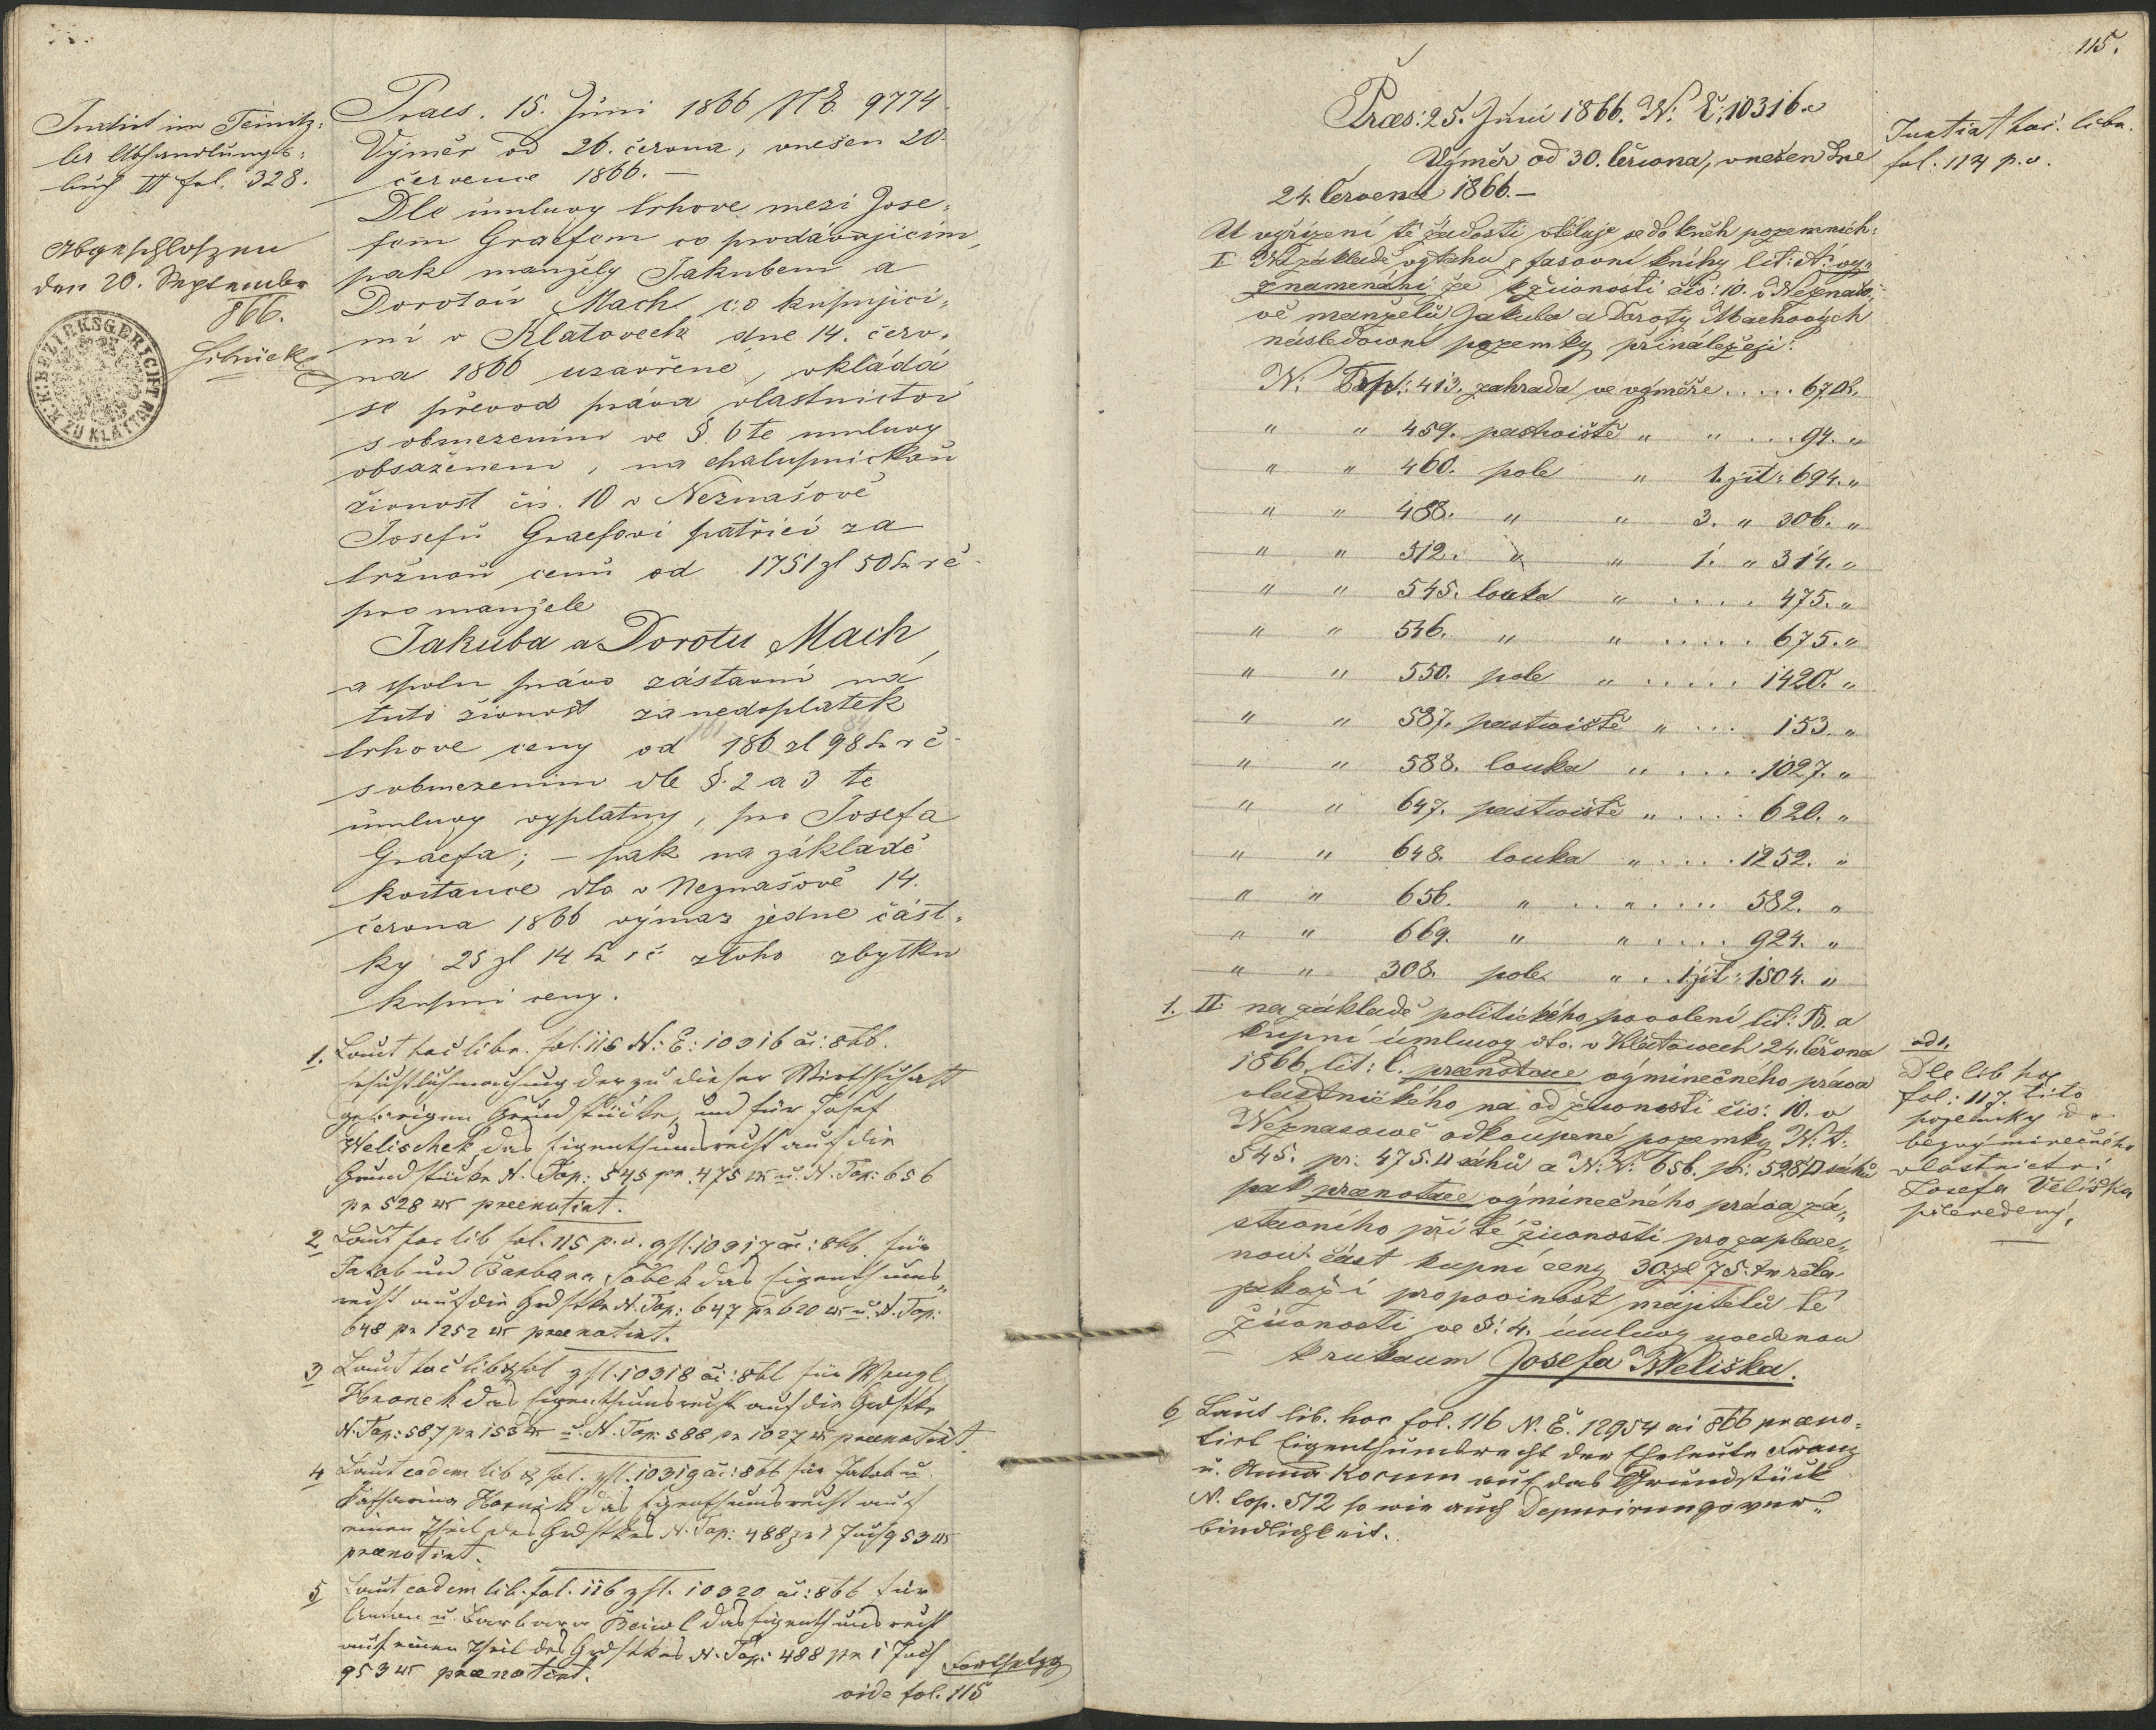 Intabirt im Teinitz-
ler Abhandlungs-
buch II fol. 328.
Abgeschloßen
den 20. September
866.
K:K: BEZIRKSGERICHT ZU KLATTAU
Praes. 15. Juni 1866 N E. 9774
Výměr od 26. června, vnešen 20.
července 1866. —
Dle úmluvy trhove mezi Jose-
fem Graefem co prodávajícím,
pak manžely Jakubem a
Dorotoú Mach co kupujíci-
mi v Klatovech dne 14. červ-
na 1866 uzavřené, vkládá
se převod práva vlastnictví
s obmezením ve §. 6 te umluvy
obsaženem, na chalupnickoú
živnost čís. 10 v Neznašově
Josefů Graefovi patřící za
tržnoú cenů od 1751 zl 50 kr č
pro manžele
Jakuba a Dorotu Mach,
a spolu právo zástavní na
tuto živnost za nedoplatek
trhove ceny od 186 zl 98 kr č
s obmezením dle §. 2 a 3 te
úmluvy vyplatny, pro Josefa
Graefa; — pak na základě
kvitance dto v Neznašově 14.
června 1866 výmaz jedne část-
ky 25 zl 14 kr č z toho zbytku
kupní ceny.
1. Laut hoc libr. fol. 115 N: E: 10316 ai: 866.
der zu dieser Wirthschaft
gehörigen Grundstücke, und für Josef
Welischek das Eigenthumsrecht auf die
Grundstücke N. Top: 545 pr 475 u. N. Top: 656
pr 528 praenotirt.
2 Laut hoc lib fol. 115 p. v. 10317 ai: 866 für
Jakob und Barbara das Eigenthums-
recht auf die Grdstke N. Top: 647 pr 620 u. N. Top:
648 pr 1252 praenotirt.
3 Laut hoc lib & fol 10318 ai: 866 für Wenzl
das Eigenthumsrecht auf die Grdstke
N. Top: 587 pr 153 u. N. Top: 588 pr 1027 praenotirt.
4 Laut eodem lib & fol. 10319 ai: 866 für Jakob u
Katharina das Eigenthumsrecht auf
einen Theil des Grdstkes N. Top: 488 pr 1 Joch 953
praenotirt.
5 Laut eodem lib. fol. 116 10320 ai: 866 für
Anton u. Barbara das Eigenthumsrecht
auf einen Theil des Grdstkes N. Top: 488 pr 1 Joch
953 praenotirt.
Fortsetzg
vide fol. 115
115.
Præs: 25. Juni 1866. N: E: 10316.
Výměr od 30. června, vnešen dne
24. července 1866. —
Intabirt hoc. libr.
fol. 114 p. v.
U vyřízení té žádosti vtěluje se do kněh pozemních:
I Na základě výtahu z fasovní knihy lit: A: vy-
znamenání že k živnosti čís: 10. v Neznašo-
vě manželů Jakuba a Doroty Machových
následovní pozemky přináležejí:
N: Top: 413. zahrada ve výměře . . . . . 67
" " 459. pastviště " " . . . 94. "
" " 460. pole " 1. jit: 694. "
" " 488. " " 3. " 306. "
" " 512. " " 1. " 314. "
" " 545. louka " . . . . 475. "
" " 546. " " . . . . . 675. "
" " 550. pole " . . . . . 1420. "
" " 587. pastviště " . . . 153. "
" " 588. louka " . . . . 1027. "
" " 647. pastviště " . . . . 620. "
" " 648. louka " . . . . 1252. "
" " 656. " . . " . . . . . 582. "
" " 669. " " . . . . . 924. "
" " 308. pole " . . 1. jit: 1504. "
1. II: na základě politického povolení lit: B. a
kupní úmluvy dto. v Klatowech 24. června
1866 lit: C. praenotace výminečného práva
vlastnického na od živnosti čís: 10. v
Neznasowě odkoupené pozemky N: t:
545. pr: 475. □ sáhů a N: t: 656. pr: 528 □ sáhů
pak praenotace výminečného práva zá-
stavního při té živnosti pro zaplace-
nou část kupní ceny 30 zl 75. kr
jakož i pro povinnost majitelů té
živnosti ve §: 4. úmluvy uvedenou
k rukoum Josefa Weliška.
ad 1.
Dle lib hoc
fol: 117. tito
pozemky do
bezvýminečného
vlastnictví
Josefa Veliška
převedeny.
6 Laut lib. hoc fol. 116 N. E. 12954 ai 866 præno-
tirt Eigenthumsrecht der Eheleute Franz
u. Anna Korum auf das Grundstück
N. top. 512 so wie auch Depurirungsver-
bindlichkeit.